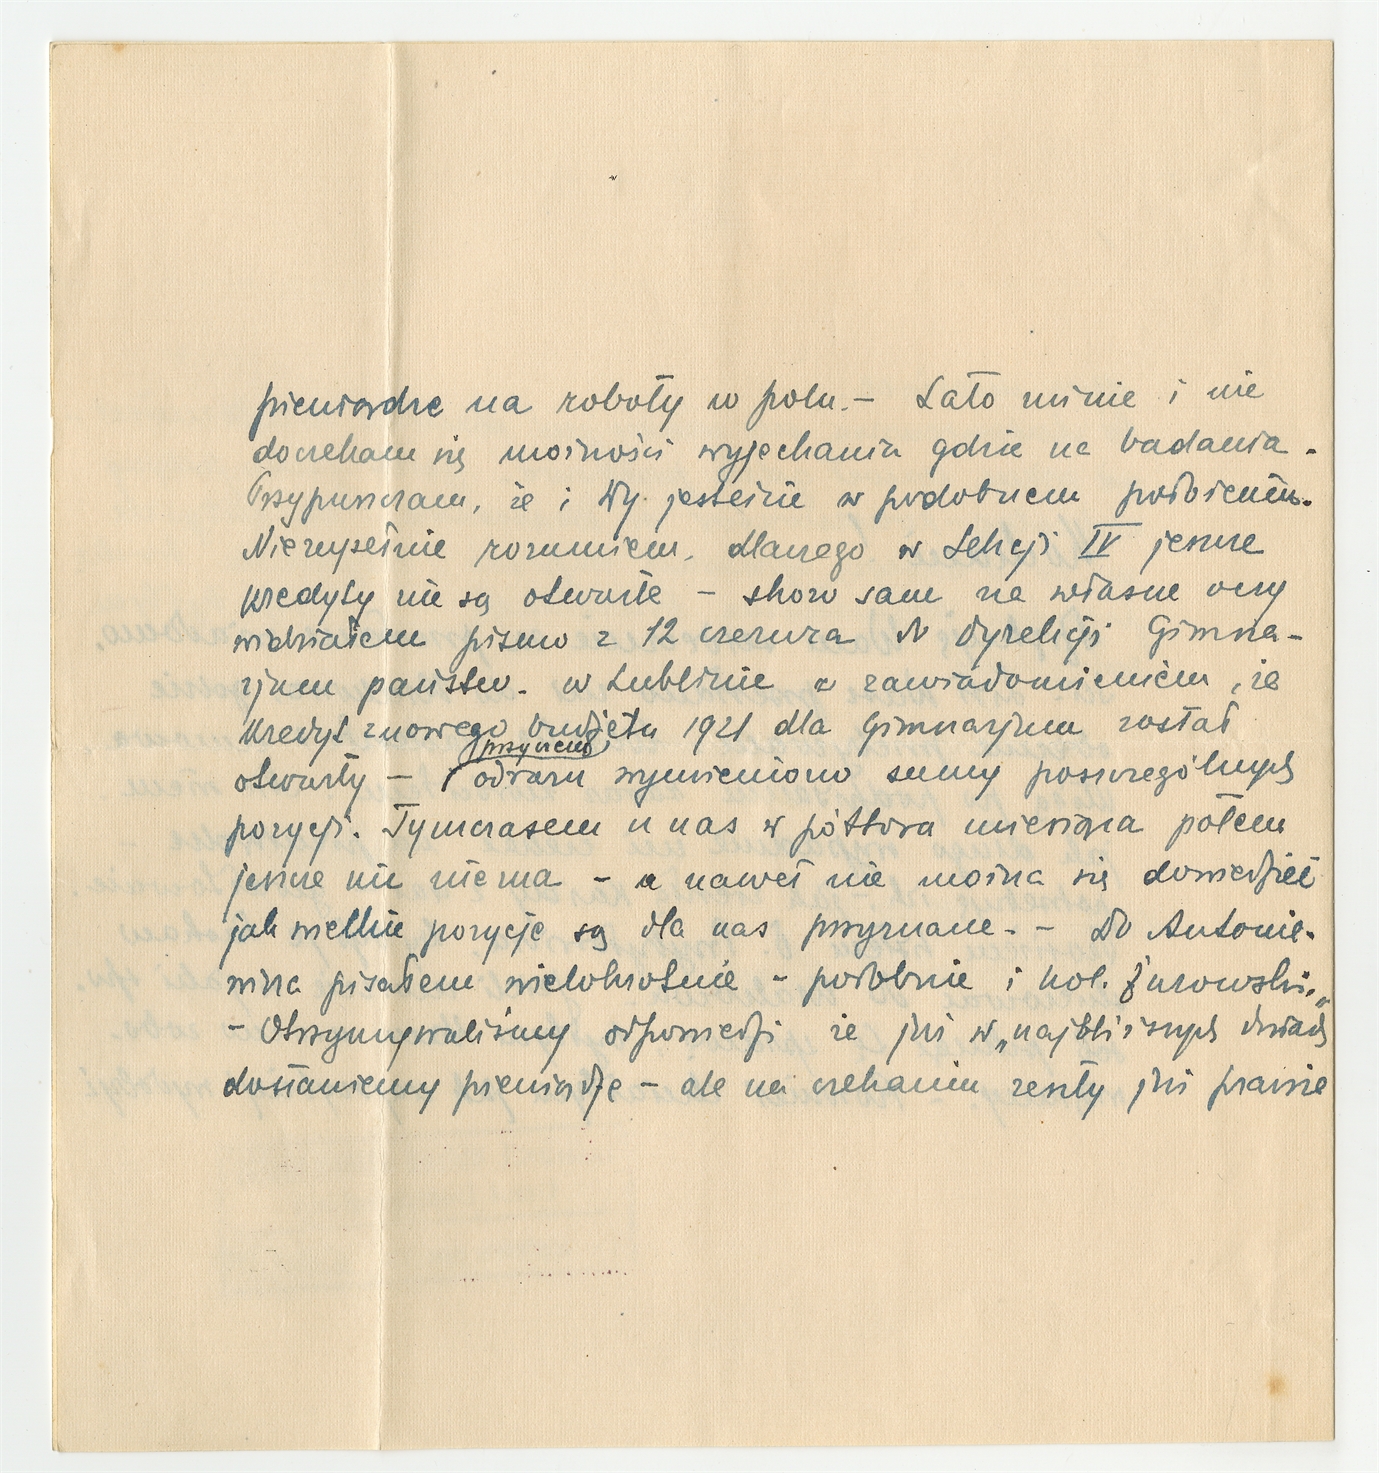 pieniądze na roboty w polu. – Lato minie i nie
doczekam się możności wyjechania gdzie na badania.
Przypuszczam, że i Wy jesteście w podobnem położeniu.
Niezupełnie rozumiem, dlaczego w Sekcji IV jeszcze
kredyty nie są otwarte – skoro sam na własne oczy
widziałem pismo z 12 czerwca w Dyrekcji Gimna-
zjum państw. w Lublinie z zawiadomieniem, że
kredyt z nowego budżetu 1921 dla Gimnazjum został
otwarty – (przyczem) odrazu wymieniono sumy poszczególnych
pozycji. Tymczasem u nas w półtora miesiąca potem
jeszcze nic niema – a nawet nie można się dowiedzieć
jak wielkie pozycje są dla nas przyznane. – Do Antonie-
wicza pisałem wielokrotnie – podobnie i kol. Żurowski.
– Otrzymywaliśmy odpowiedzi że już w „najbliższych dniach"
dostaniemy pieniądze – ale na czekaniu zeszły już prawie